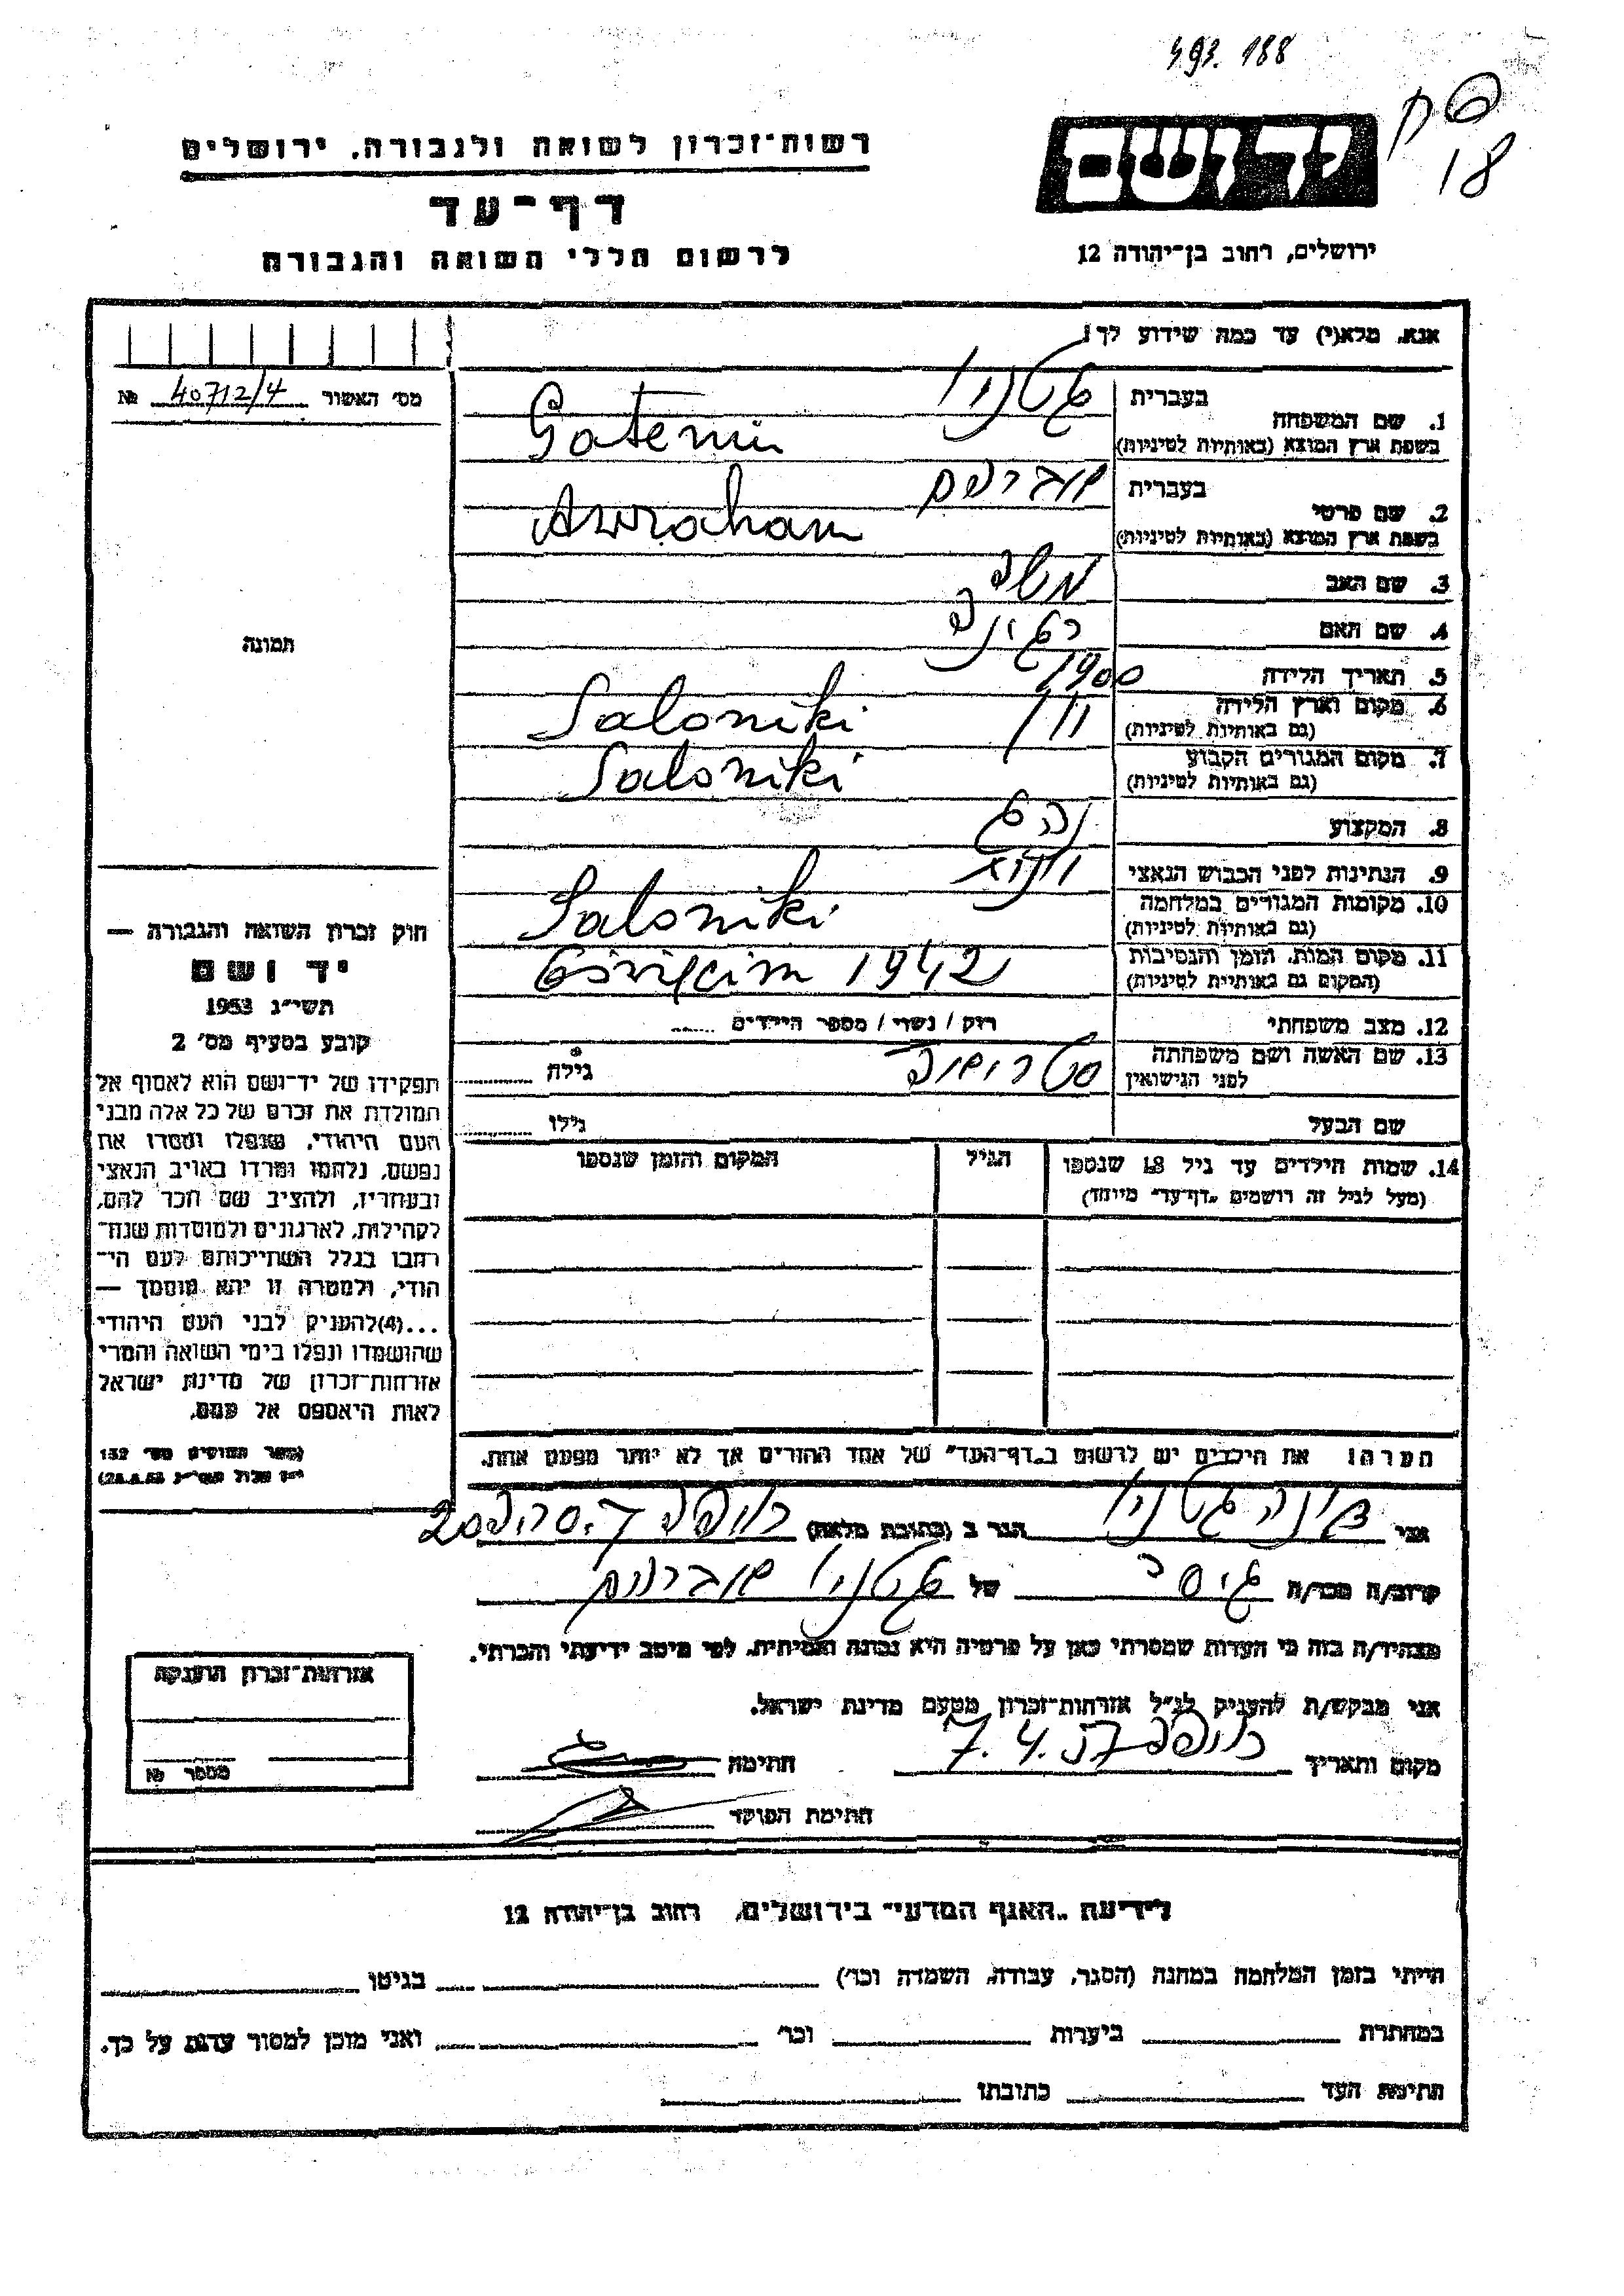 493.188
פח
18
יד ושם
רשות־זכרון לשואה ולגבורה, ירושלים
דף־עד
לרשום חללי השואה והגבורה
ירושלים, רחוב בן־יהודה 12
אנא, מלא(י) עד כמה שידוע לך!
מס' האשור 40712/4 №
תמונה
1. שם המשפחה
בעברית גטניו
בשפת ארץ המוצא (באותיות לטיניות) Gateniu
2. שם פרטי
בעברית אברהם
בשפת ארץ המוצא (באותיות לטיניות) Awraham
3. שם האב משה
4. שם האם רגינה
5. תאריך הלידה 1900
6. מקום וארץ הלידה יוון Saloniki
(גם באותיות לטיניות)
7. מקום המגורים הקבוע Saloniki
(גם באותיות לטיניות)
8. המקצוע נהג
9. הנתינות לפני הכבוש הנאצי יוונית
10. מקומות המגורים במלחמה Saloniki
(גם באותיות לטיניות)
11. מקום המות, הזמן והנסיבות 1942
(המקום גם באותיות לטיניות)
12. מצב משפחתי רוק / נשוי / מספר הילדים
13. שם האשה ושם משפחתה
לפני הנישואין גילה
שם הבעל גילו
14. שמות הילדים עד גיל 18 שנספו הגיל המקום והזמן שנספו
(מעל לגיל זה רושמים „דף־עד" מיוחד)
חוק זכרון השואה והגבורה —
יד ושם
תשי"ג 1953
קובע בסעיף מס' 2
תפקידו של יד־ושם הוא לאסוף אל
המולדת את זכרם של כל אלה מבני
העם היהודי, שנפלו ומסרו את
נפשם, נלחמו ומרדו באויב הנאצי
ובעוזריו, ולהציב שם וזכר להם,
לקהילות, לארגונים ולמוסדות שנח־
רבו בגלל השתייכותם לעם הי־
הודי, ולמטרה זו יהא מוסמך —
...(4)להעניק לבני העם היהודי
שהושמדו ונפלו בימי השואה והמרי
אזרחות־זכרון של מדינת ישראל
לאות היאספם אל עמם.
(ספר החוקים מס' 132
י"ז אלול תשי"ג 28.8.53)
הערה: את הילדים יש לרשום ב„דף־העד" של אחד ההורים אך לא יותר מפעם אחת.
אני דינה גטניו הגר ב (כתובת מלאה) חיפה
קרוב/ה מכר/ה גיסה של גטניו אברהם
מצהיר/ה בזה כי העדות שמסרתי כאן על פרטיה היא נכונה ואמיתית, לפי מיטב ידיעתי והכרתי.
אני מבקש/ת להעניק לנ"ל אזרחות־זכרון מטעם מדינת ישראל.
מקום ותאריך חיפה 7.4.57 חתימה
חתימת הפוקד
אזרחות־זכרון הוענקה
מספר №
לידיעת „האגף המדעי" בירושלים, רחוב בן־יהודה 12
הייתי בזמן המלחמה במחנה (הסגר, עבודה, השמדה וכו') בגיטו
במחתרת ביערות וכו' ואני מוכן למסור עדות על כך.
חתימת העד כתובתו